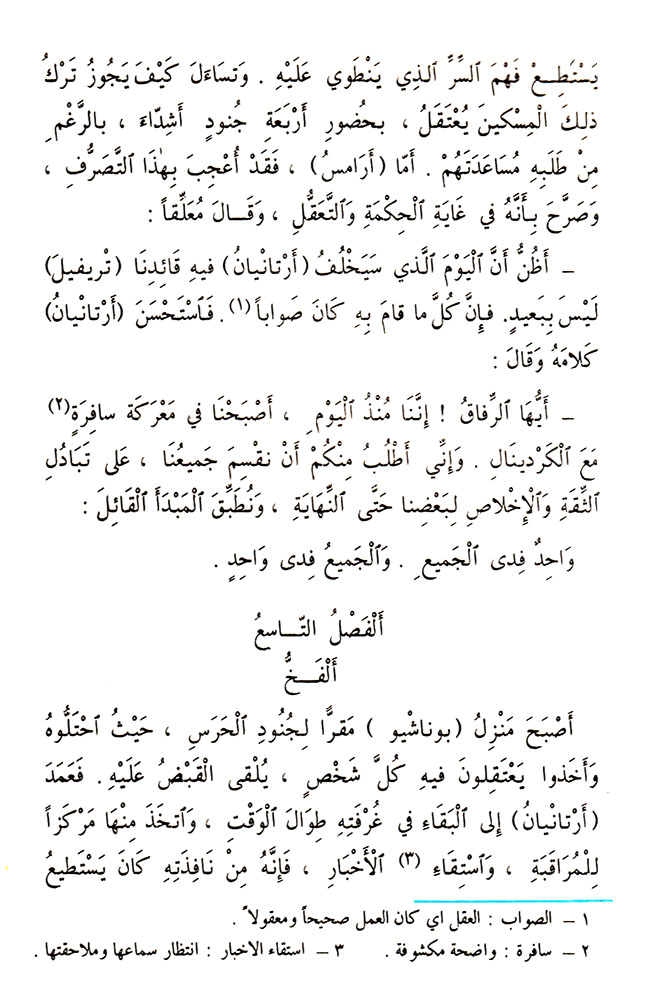 يَسْتَطِعْ فَهْمَ ٱلسِّرِّ ٱلذِي يَنْطَوِي عَلَيْهِ . وَتسَاءَلَ كَيْفَ يَجُوزُ تَرْكُ
ذلِكَ الْمِسْكينَ يُعْتَقَلُ ، بحُضورِ أَرْبَعَةِ جُنودٍ أَشِدّاءَ ، بالرَّغْمِ
مِنْ طَلَبِهِ مُسَاعَدَتَهُمْ . أَمّا (أَرَامسُ) ، فَقَدْ أُعْجِبَ بِهٰذَا ٱلتَّصَرُّفِ ،
وَصَرَّحَ بِأَنَّهُ في غَايَةِ ٱلْحِكْمَةِ وَٱلتَّعَقُّلِ ، وَقَالَ مُعَلِّقاً :
– أَظُنُّ أَنَّ ٱلْيَوْمَ ٱلَّذي سَيَخْلُفُ (أَرْتانْيانُ) فيهِ قَائِدَنَا (تْريفيلَ)
لَيْسَ بِبَعيدٍ. فإِنَّ كُلَّ ما قامَ بِهِ كَانَ صَواباً (١) . فَٱسْتَحْسَنَ (أَرْتانْيانُ)
كَلامَهُ وَقَالَ :
– أَيُّهَا ٱلرِّفاقُ ! إِنَّنَا مُنْذُ ٱلْيَوْمِ ، أَصْبَحْنَا في مَعْرَكَة سافِرَةٍ(٢)
مَعَ ٱلْكَرْدينَالِ . وَإِنِّي أَطْلُبُ مِنْكُمْ أَنْ نقْسِمَ جَميعُنَا ، عَلى تَبَادُلِ
ٱلثِّقَةِ وَٱلْإِخْلاصِ لِبَعْضِنا حَتَّى ٱلنِّهَايَةِ ، وَنُطَبِّقَ ٱلْمَبْدَأَ ٱلْقَائِلَ :
وَاحِدٌ فِدى ٱلْجَميعِ . وَٱلْجَميعُ فِدى وَاحِدٍ .
أَلْفَصْلُ التّاسعُ
أَلْفَخُّ
أَصْبَحَ مَنْزِلُ (بوناشْيو ) مَقرًّا لِجُنُودِ ٱلْحَرَسِ ، حَيْثُ ٱحْتَلُّوهُ
وَأَخَذوا يَعْتَقِلونَ فيهِ كُلَّ شَخْصٍ ، يُلْقى ٱلْقَبْضُ عَلَيْهِ . فَعَمَدَ
(أَرْتانْيانُ) إِلى ٱلْبَقَاءِ في غُرْفَتِهِ طِوَالَ ٱلْوَقْتِ ، وَٱتخَذَ مِنْهَا مَرْكَزاً
لِلْمُرَاقَبَةِ ، وَٱسْتِقَاءِ (٣) ٱلْأَخْبَارِ ، فَإِنَّهُ مِنْ نَافِذَتِهِ كَانَ يَسْتَطيعُ
١ – الصواب : العقل اي كان العمل صحيحاً ومعقولاً .
٢ – سافرة : واضحة مكشوفة . ٣ – استقاء الاخبار : انتظار سماعها وملاحقتها .